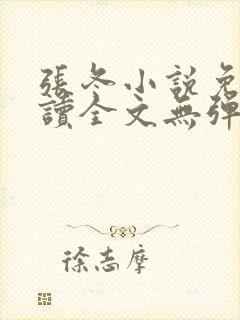 張冬小說免
讀全文無彈
徐志摩